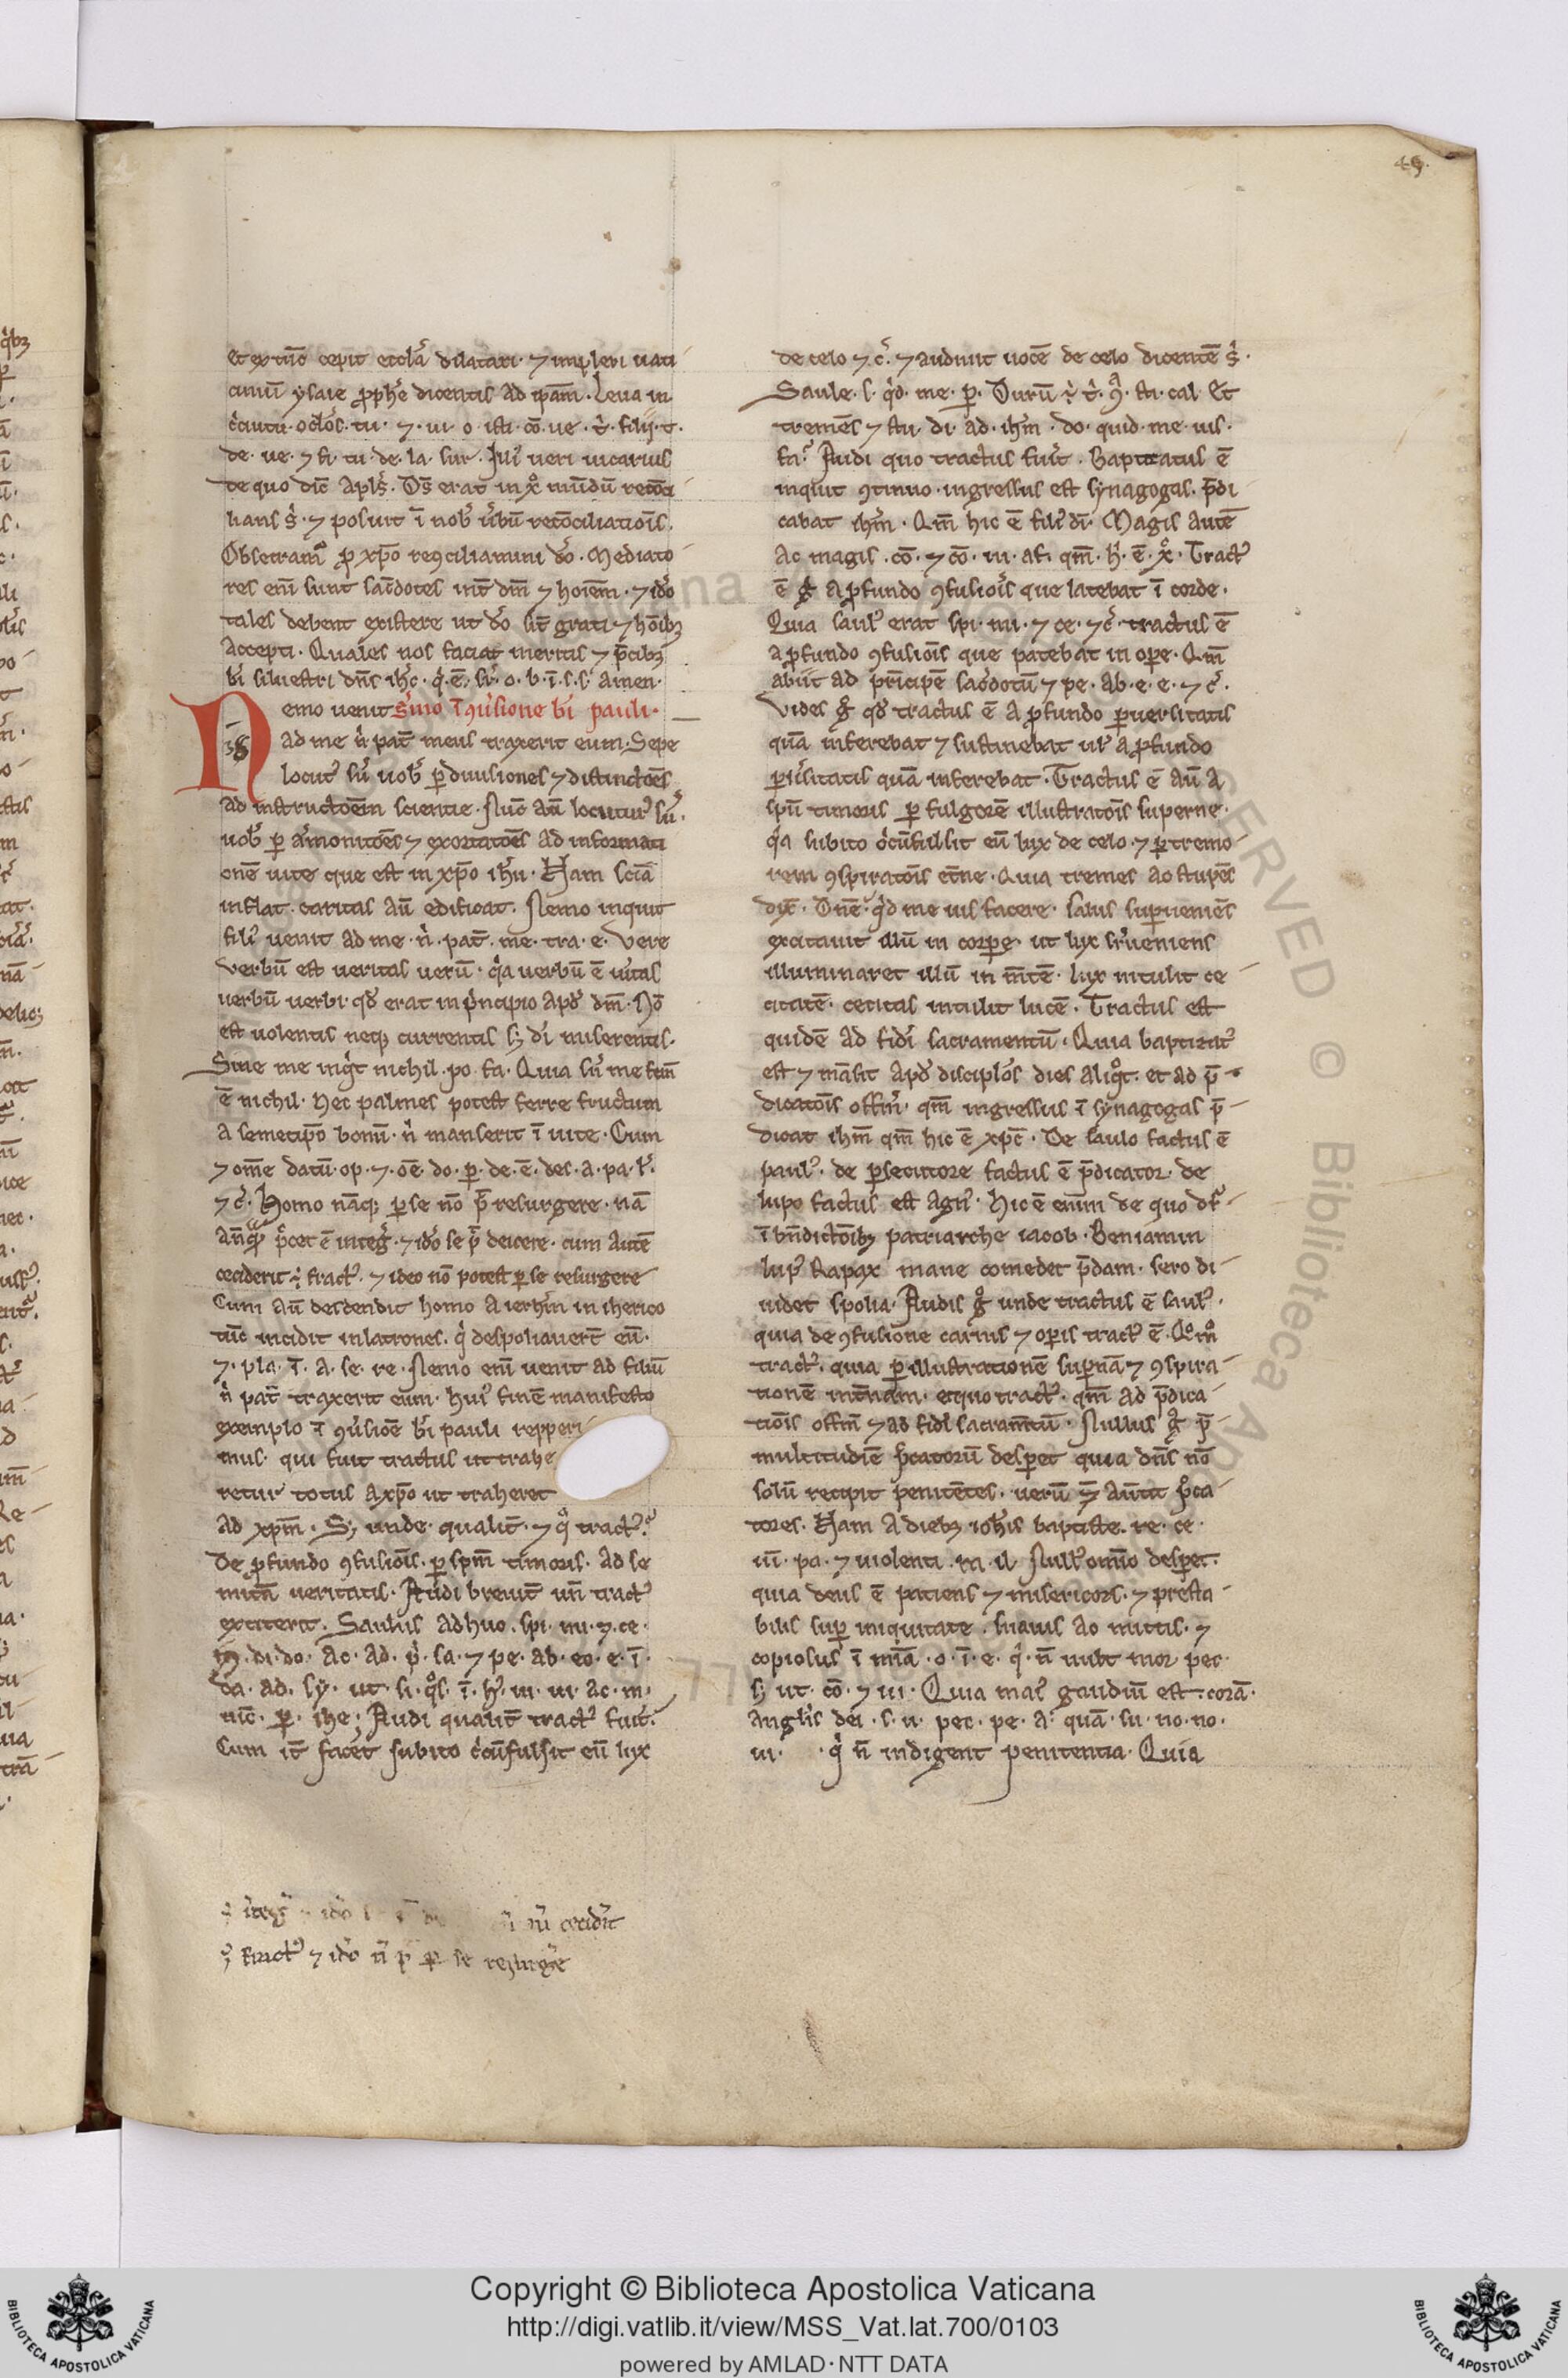 49.
et extu̅c cepit eccl̅a̅ dilatari · ⁊ impleri uati
ciniu̅ ysaie ꝓph̅e dicentis ad ip̅am · Leua in
de · ue · ⁊ fi · tu · de · la · sur · Hui᷒ ueri uicarius
de quo dic̅ apl̅s · D̅s erat in x̅o mu̅du̅ reco̅ci
lians s̅ · ⁊ posuit i̅ nob̅ u̅bu̅ reco̅ciliatio̅is ·
Obsecram᷒ ꝓ xp̅o reꝯciliamini d̅o · Mediato
res eni̅ sunt sac̅dotes int̅ dm̅ ⁊ hoi̅em · ⁊ id̅o
tales debent existere ut d̅o si̅t grati ⁊ ho̅ibꝫ
accepti · Quales nos faciat meritis ⁊ p̅cibꝫ
bi̅ siluestri dn̅s ih̅c · amen ·
emo uenit s̅mo i̅ ꝯu̅sione bi̅ pauli ·
ad me n̅ pat̅ meus traxerit eum · Sepe
locut᷒ su̅ uob̅ ꝑ diuisiones ⁊ distincto̅es
ad instructo̅em scientie · Nu̅c au̅ locutur᷒ su̅ ·
uob̅ ꝑ a̅monito̅es ⁊ exortato̅es ad informati
one̅ uite que est in xp̅o ih̅u · Nam sci̅a
inflat · caritas au̅ edificat · Nemo inquit
fili᷒ uenit ad me · n̅ · pat̅ · me · tra · e · Vere
verbu̅ est ueritas ueru̅ · q̅a uerbu̅ e̅ u̅itas
uerbu̅ uerbi · qd̅ erat in p̅ncipio apd̅ dm̅ · No̅
est uolentis neqꝫ currentis sꝫ di̅ miserentis ·
Sine me inq̅t nichil · po · fa · Quia
e̅ nichil · Nec palmes potest ferre fructum
a semetip̅o bonu̅ · n̅ manserit i̅ uite · Cum
⁊ om̅e datu̅ · op · ⁊ · o̅e · do · ꝑ · de · e̅ · des · a · pa · l̅ ·
⁊ c̅ · Homo na̅qꝫ ꝑ se no̅ p̅ resurgere · na̅
an̅qua̅ p̅cet e̅ integ̅ · ⁊ id̅o se p̅ deicere · cum aute̅
ceciderit ·̅ fract᷒ · ⁊ ideo no̅ potest ꝑ se resurgere
Cum au̅ descendit homo a ierl̅m in iherico
tu̅c incidit in latrones · q̅ despoliauer̅t eu̅ ·
⁊ · pla · i̅ · a · se · re · Nemo eni̅ uenit ad filiu̅
n̅ pat̅ traxerit eum · Hui᷒ fine̅ manifesto
exemplo i̅ ꝯu̅sio̅e bi̅ pauli repperi
mus · qui fuit tractus ut trahe
retur totus a xp̅o ut traheret
ad xp̅m · Sꝫ unde · qualit̅ · ⁊ q̊ tract᷒ ·
De ꝓfundo ꝯfusio̅is · ꝑ sp̅m timoris · ad se
mita̅ ueritatis · Audi breuit̅ un̅ tract᷒
extiterit · Saulus adhuc · spi · mi · ⁊ · ce ·
di · do · ac · ad · p̅ · sa · ⁊ pe · ab · eo · e · i̅ ·
da · ad · sy · ut · si · q̊s · i̅ · h᷒ · ui · ui · ac · m ·
uic̅ · ꝑ · ihe · Audi qualit̅ tract᷒ fuit ·
Cum it̅ facet subito c̅cu̅fulsit eu̅ lux
de celo ⁊ c̅ · ⁊ audiuit uoce̅ de celo dicente̅ s̅ ·
Saule · s · q̅d · me · ꝑ · Duru̅ · t̅ · ꝯ̅ · sti · cal · Et
treme̅s ⁊ stu · di · ad · ih̅m · do · quid · me · uis ·
fa · Audi quo tractus fuit · Baptizatus e̅
inquit ꝯtinuo · ingressus est synagogas · p̅di
cabat ih̅m · Qm̅ hic e̅ fili᷒ di̅ · Magis aute̅
ac magis · co̅ · ⁊ co̅ · iu · af · qm̅ · h᷒ · e̅ · x̅ · Tract᷒
e̅ g̅ a ꝓfundo ꝯfusio̅is que latebat i̅ corde ·
Quia saul᷒ erat spi · mi · ⁊ ce · ⁊ c̅ · tractus e̅
a ꝓfundo ꝯfusio̅is que patebat in oꝑe · Qm̅
abiit ad p̅ncipe̅ sac̅dotu̅ ⁊ pe · ab · e · e · ⁊ c̅ ·
Vides g̅ qd̅ tractus e̅ a ꝓfundo ꝑuersitatis
qua̅ inferebat ⁊ sustinebat ul̅ a ꝓfundo
ꝑu̅sitatis qua̅ inferebat · Tractus e̅ au̅ a
spu̅ timoris ꝑ fulgore̅ illustrato̅is superne ·
q̅a subito c̅cu̅fulsit eu̅ lux de celo · ⁊ ꝑ tremo
rem ꝯspirato̅is et̅ne · Quia tremes ac stupe̅s
dix̅ · Dn̅e · q̅d me uis facere · salus suꝑuenie̅s
excitauit illu̅ in corꝑe · ut lux su̅ueniens
illuminaret illu̅ in m̅te̅ · lux intulit ce
citate̅ · cecitas intulit luce̅ · Tractus est
quide̅ ad fidei̅ sacramentu̅ · Quia baptizat᷒
est ⁊ ma̅sit apd̅ disciplo̅s dies aliq̊t · et ad p̅
dicato̅is offm̅ · qm̅ ingressus i̅ synagogas p̅
dicat ih̅m qm̅ hic e̅ xp̅c · De saulo factus e̅
paul᷒ · de ꝑsecutore factus e̅ p̅dicator · de
lupo factus est agn᷒ · Hic e̅ enim de quo dr̅
i̅ bn̅dicto̅ibꝫ patriarche iacob · Beniamin
lup᷒ Rapax mane comedet p̅dam · sero di
uidet spolia · Audis g̊ unde tractus e̅ saul᷒ ·
quia de ꝯfusione carnis ⁊ oꝑis tract᷒ e̅ · Qo̅m̊
tract᷒ · quia ꝑ illustratione̅ suꝑna̅ ⁊ ꝯspira
tione̅ int̅nam · et quo tract᷒ · qm̅ ad p̅dica
tio̅is offm̅ ⁊ ad fidei sacram̅tu̅ · Nullus g̊ p̅
multitudi̅e p̅catoru̅ desꝑet quia dn̅s no̅
solu̅ recipit penite̅tes · ueru̅ p̅ca
tores · Nam a diebꝫ ioh̅is baptiste · re · ce ·
ui̅ · pa · ⁊ uiolenti · ra · il · Null᷒ omi̅o desꝑet ·
quia deus e̅ patiens ⁊ misericors · ⁊ presta
bilis suꝑ iniquitate · suauis ac mitis · ⁊
copiosus i̅ mi̅a · o · i̅ · e · q̅ · n̅ uult mor̅ pec ·
sꝫ ut · co̅ · ⁊ ui · Quia mai᷒ gaudiu̅ est · cora̅ ·
angl̅is dei · s · u · pec · pe · a · qua̅ · su · no · no ·
iu · · q̅ n̅ indigent penitentia · Quia
cecid̅it
fract᷒ ⁊ id̅o n̅ p̅ ꝑ se resurg̅e
Copyright © Biblioteca Apostolica Vaticana
http://digi.vatlib.it/view/MSS_Vat.lat.700/0103
powered by AMLAD·NTT DATA
BIBLIOTECA APOSTOLICA VATICANA
BIBLIOTECA APOSTOLICA VATICANA